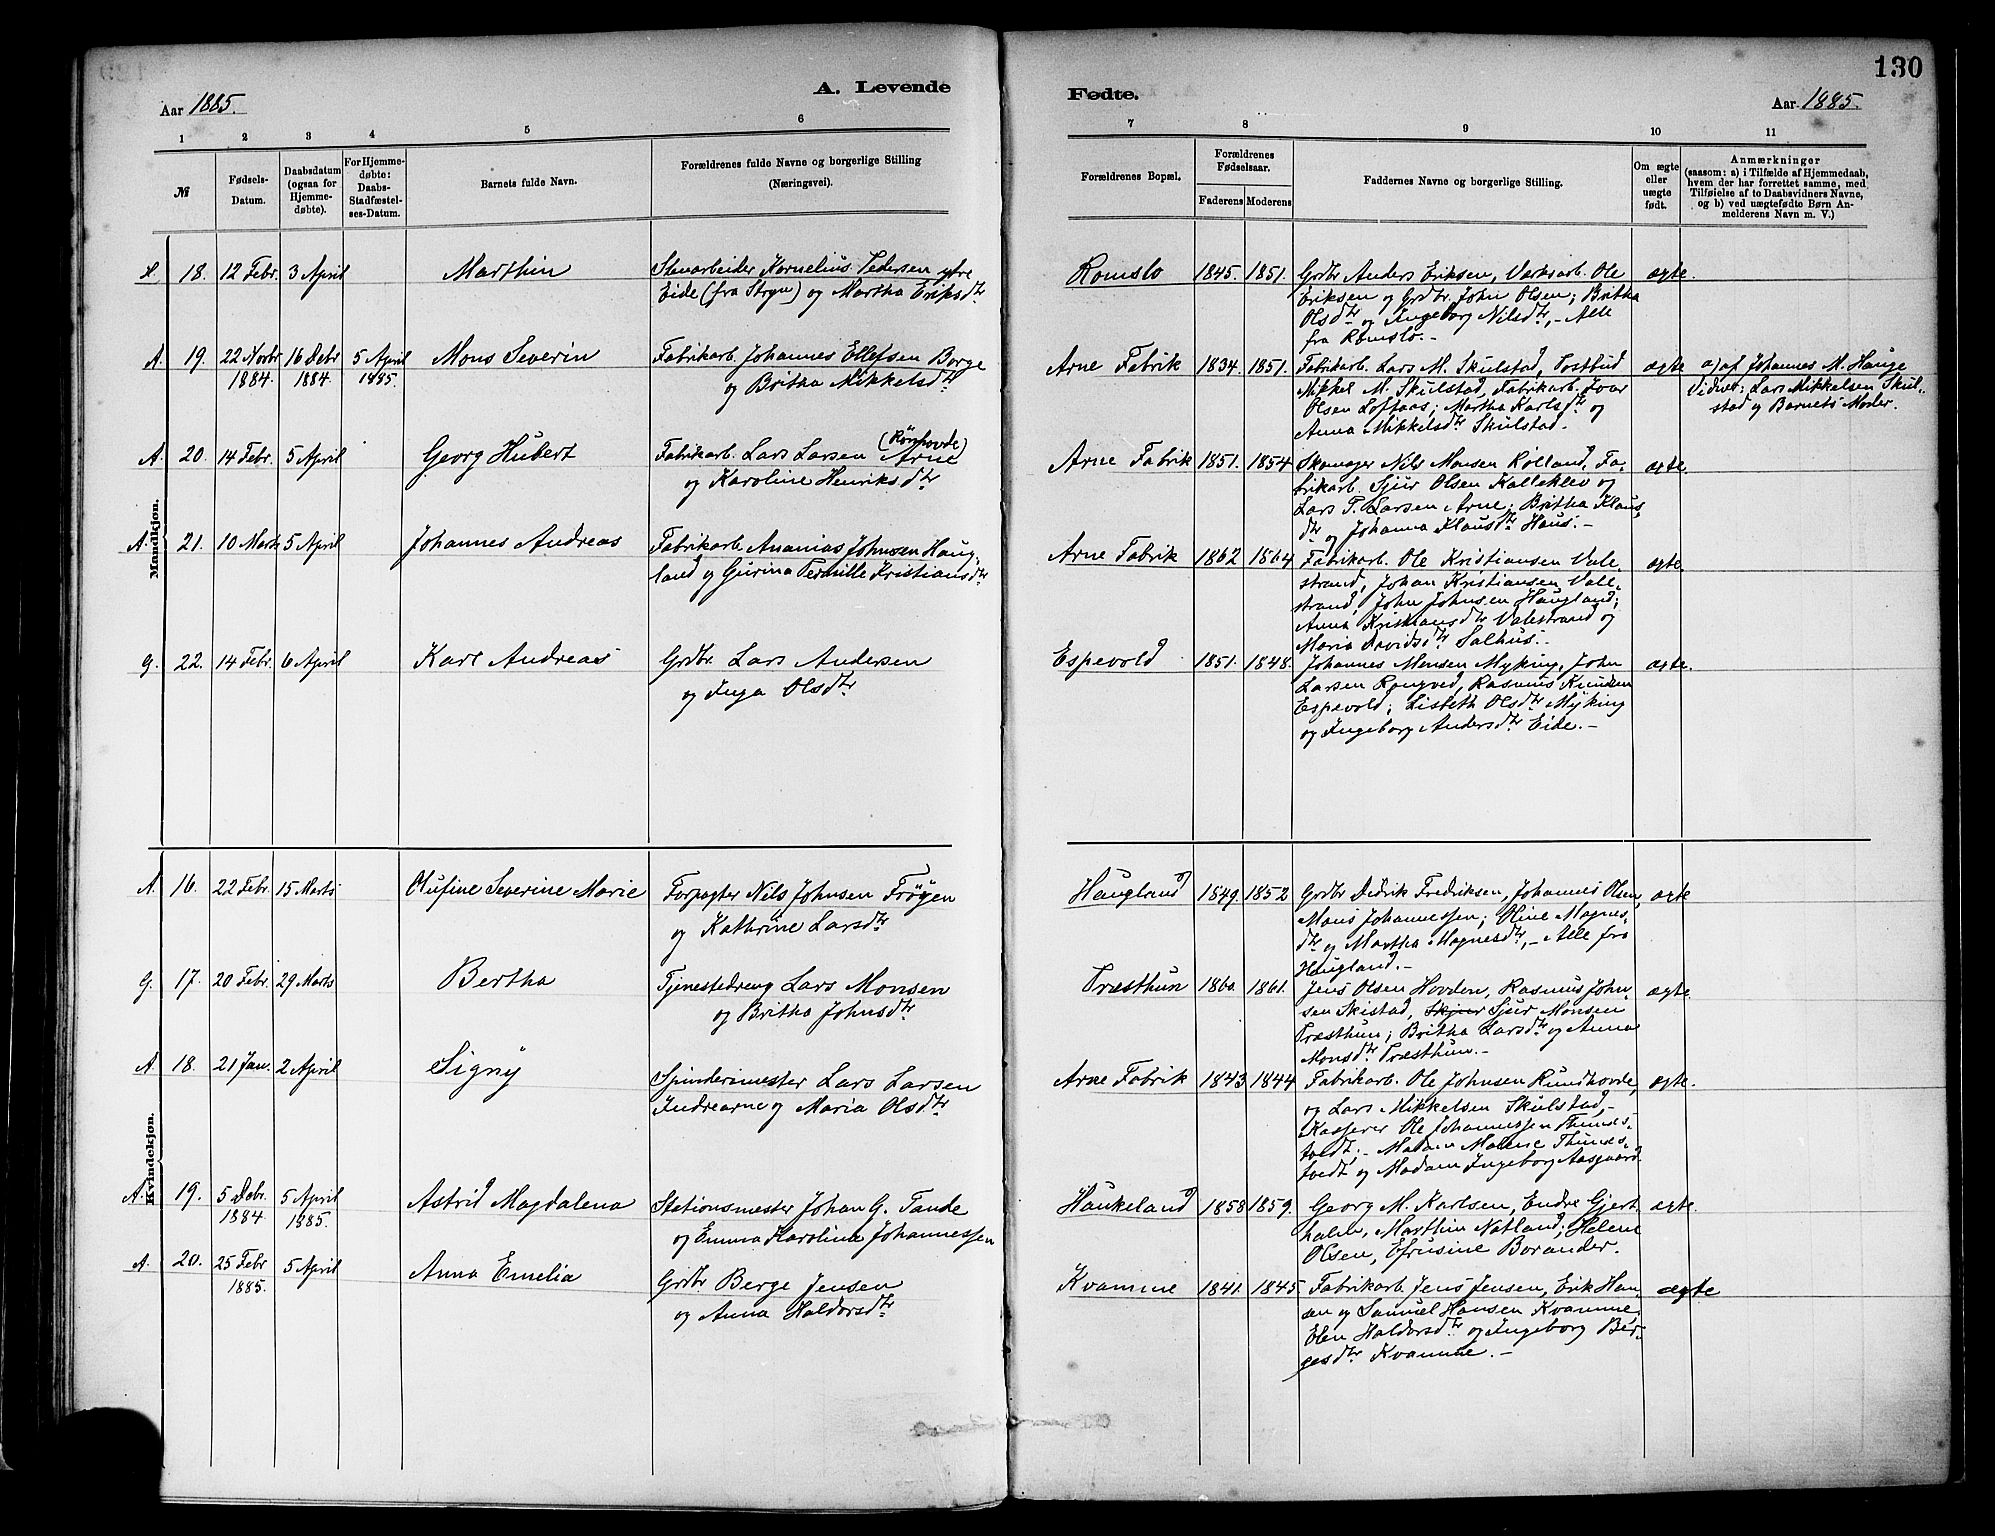 130
A. Levende Fødte.
Aar 1885.
Aar 1885.
1 2 3 4 5 6 7 8 9 10 11
№
Fødsels-Datum.
Daabsdatum (ogsaa for Hjemme-døbte).
For Hjemme-døbte: Daabs-Stadfæstel-ses-Datum.
Barnets fulde Navn.
Forældrenes fulde Navne og borgerlige Stilling (Næringsvei).
Forældrenes Bopæl.
Forældrenes Fødselsaar.
Faderens Moderens
Faddernes Navne og borgerlige Stilling.
Om ægte eller uægte født.
Anmærkninger
(saasom: a) i Tilfælde af Hjemmedaab,
hvem der har forrettet samme, med
Tilføielse af to Daabsvidners Navne,
og b) ved uægtefødte Børn An-
melderens Navn m. V.)
Mandkjøn.
18. 12 Febr. 3 April Marthin
Stenarbeider Kornelius Pedersen ytre
Eide (fra Stryn) og Martha Eriksdtr
Romslo 1845. 1851.
Grdbr Anders Eriksen, Værksarb. Ole
Eriksen og Grdbr. John Olsen; Britha
Olsdtr og Ingeborg Nilsdtr, - Alle
fra Romslo. -
ægte.
A. 19. 22 Novbr 1884. 16 Debr 1884. 5 April 1885. Mons Severin
Fabrikarb. Johannes Ellefsen Borge
og Britha Mikkelsdtr
Arne Fabrik 1834. 1851.
Fabrikarb. Lars M. Skulstad, Postbud
Mikkel M. Skulstad, Fabrikarb. Ivar
Olsen Loftaas; Martha Karlsdtr og
Anna Mikkelsdtr Skulstad.
ægte
a) af Johannes M. Hauge
Vidner: Lars Mikkelsen Skul-
stad og Barnets Moder.
A. 20. 14 Febr. 5 April Georg Hubert
Fabrikarb. Lars Larsen (Rönhovde) Arne
og Karoline Henriksdtr
Arne Fabrik 1851. 1854
Skomager Nils Monsen Rolland, Fa-
brikarb. Sjur Olsen Kalleklev og
Lars T. Larsen Arne; Britha Klaus-
dtr og Johanna Klausdtr Haus. -
ægte.
A. 21. 10 Marts 5 April Johannes Andreas
Fabrikarb. Ananias Johnsen Haug-
land og Gurina Pernille Kristiansdtr
Arne Fabrik 1862 1864
Fabrikarb. Ole Kristiansen Vale-
strand, Johan Kristiansen Vale-
strand, John Johnsen Haugland;
Anna Kristiansdtr Valestrand og
Maria Davidsdtr Salhus. -
ægte.
G. 22. 14 Febr. 6 April Karl Andreas
Grdbr. Lars Andersen
og Inga Olsdtr
Espevold 1851. 1848.
Johannes Monsen Myking, John
Larsen Rongved, Rasmus Knudsen
Espevold; Lisbeth Olsdtr Myking
og Ingeborg Andersdtr Eide. -
ægte.
Kvindekjøn.
A. 16. 22 Febr. 15 Marts Olufine Severine Marie
Forpagter Nils Johnsen Frøyen
og Kathrine Larsdtr
Haugland 1849. 1852
Grdbr Didrik Fredriksen, Johannes Olsen,
Mons Johannessen; Oline Magnes-
dtr og Martha Magnesdtr, - Alle fra
Haugland. -
ægte
G. 17. 20 Febr. 29 Marts Bertha
Tjenestedreng Lars Monsen
og Britha Johnsdtr
Træsthun 1860. 1861.
Jens Olsen Hovden, Rasmus John-
sen Skistad, Sjur Monsen
Træsthun; Britha Larsdtr og Anna
Monsdtr Træsthun. -
ægte.
A. 18. 21 Jan. 2 April Signy
Spindemester Lars Larsen
Indrearne og Maria Olsdtr
Arne Fabrik 1843 1844
Fabrikarb. Ole Johnsen Rundhovde,
og Lars Mikkelsen Skulstad, -
Kasserer Ole Johannessen Thunes-
tvedt; - Madam Malene Thunes-
tvedt og Madam Ingeborg Aasgaard
ægte.
A. 19. 5 Debr. 1884. 5 April 1885. Astrid Magdalena
Stationsmester Johan G. Tande
og Emma Karolina Johannessen
Haukeland 1858 1859.
Georg M. Karlsen, Endre Gjert
Marthin Natland; Helene
Olsen, Efrusine Borander.
ægte.
A. 20. 25 Febr 1885. 5 April Anna Emelia
Grdbr Berge Jensen
og Anna Haldorsdtr
Kvamme 1841. 1845.
Fabrikarb. Jens Jensen, Erik Han-
sen og Samuel Hansen Kvamme,
Elen Haldorsdtr og Ingeborg Ber-
gesdtr Kvamme. -
ægte